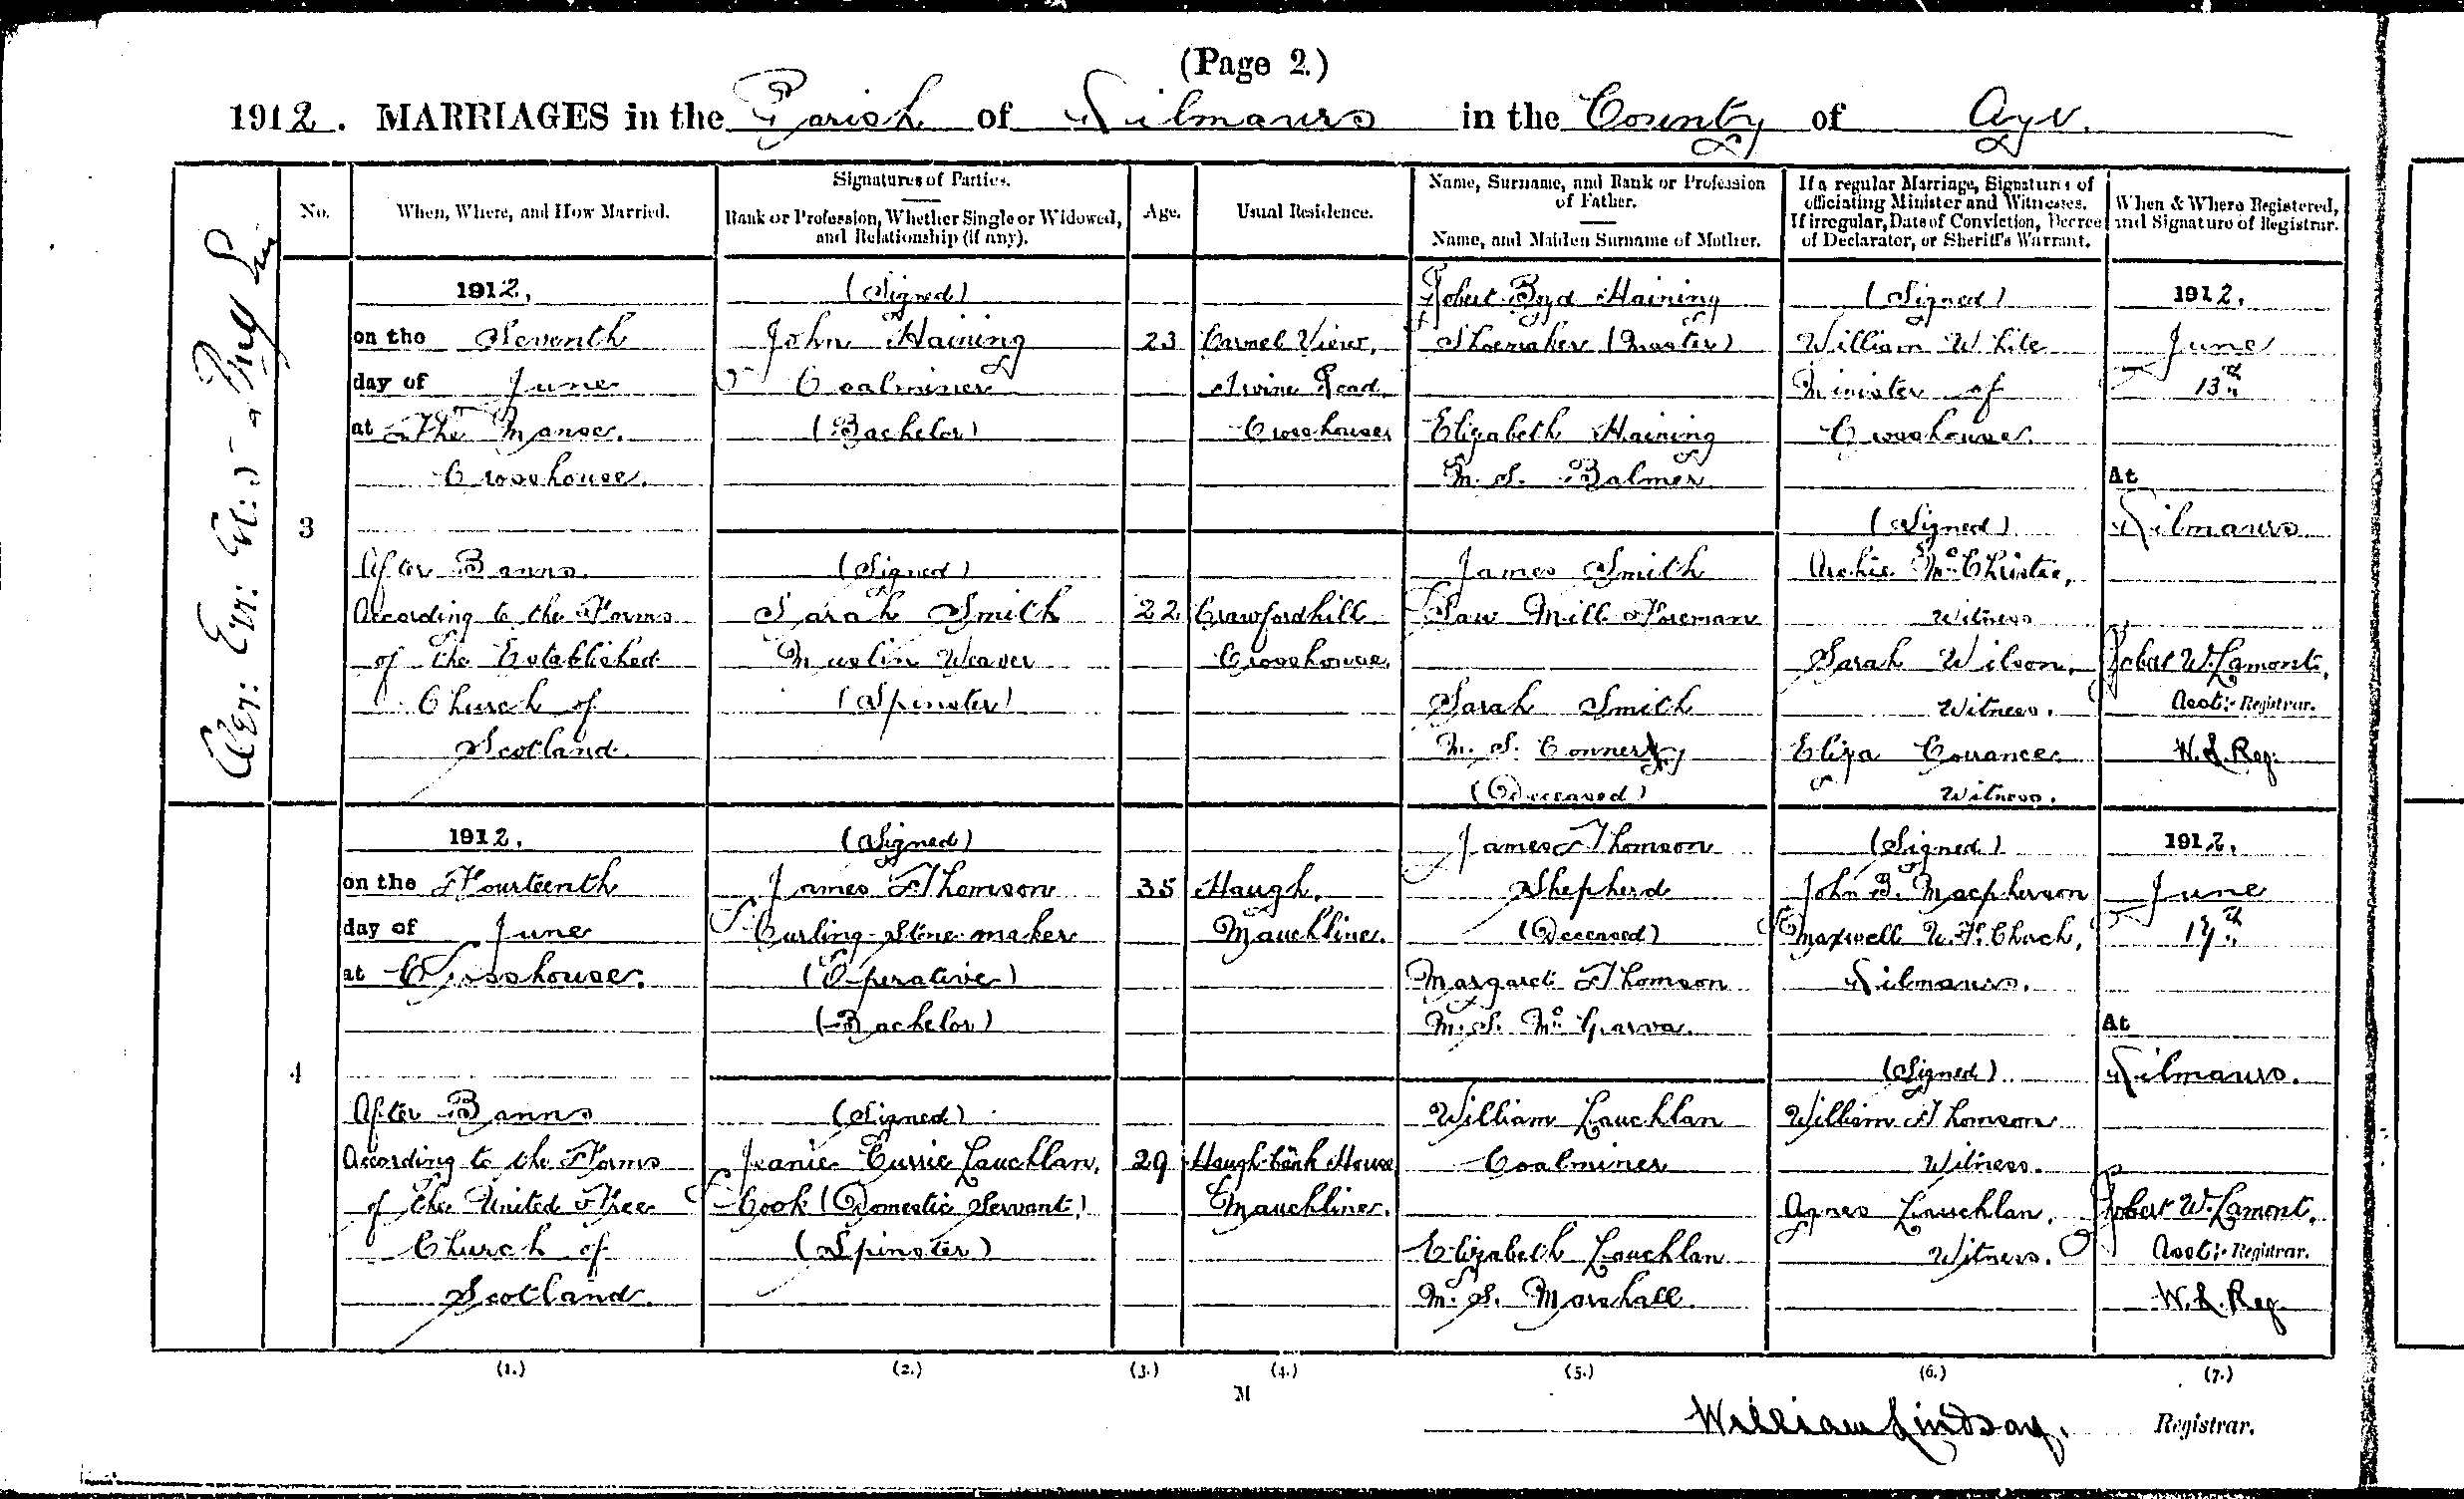 (Page 2.)
1912. MARRIAGES in the Parish of Kilmaurs in the County of Ayr.
No.
When, Where, and How Married.
Signatures of Parties.
Rank or Profession, Whether Single or Widowed,
and Relationship (if any).
Age.
Usual Residence.
Name, Surname, and Rank or Profession
of Father.
Name, and Maiden Surname of Mother.
If a regular Marriage, Signatures of
officiating Minister and Witnesses.
If irregular, Date of Conviction, Decree
of Declarator, or Sheriff's Warrant.
When & Where Registered,
and Signature of Registrar.
3
1912,
on the Seventh
day of June
at The Manse.
Crosshouse.
After Banns.
According to the Forms
of the Established
Church of
Scotland.
(Signed)
John Haining
Coalminer
(Bachelor)
(Signed)
Sarah Smith
Muslin Weaver
(Spinster)
23
22
Carmel View,
Irvine Road
Crosshouse
Crawfordhill
Crosshouse.
Robert Boyd Haining
Shoemaker (Master)
Elizabeth Haining
M.S. Balmer.
James Smith
Saw Mill Foreman
Sarah Smith
M.S. Connery
(Deceased)
(Signed)
William White
Minister of
Crosshouse.
(Signed)
Archie McChristie,
Witness
Sarah Wilson,
Witness.
Eliza Corrance
Witness.
1912.
June
13th
At
Kilmaurs
Robert W. Lamont,
Asst: Registrar.
W.L. Reg.
4
1912,
on the Fourteenth
day of June
at Crosshouse.
After Banns
According to the Forms
of the United Free
Church of
Scotland.
(Signed)
James Thomson
Curling Stone maker
(Operative)
(Bachelor)
(Signed)
Jeanie Currie Lauchlan,
Cook (Domestic Servant,)
(Spinster)
35
29
Haugh,
Mauchline.
Haughbank House
Mauchline.
James Thomson
Shepherd
(Deceased)
Margaret Thomson
M.S. McGarva.
William Lauchlan
Coalminer
Elizabeth Lauchlan
M.S. Marshall.
(Signed)
John B. Macpherson
Maxwell U.F. Church,
Kilmaurs.
(Signed)
William Thomson
Witness.
Agnes Lauchlan,
Witness.
1912.
June
17th
At
Kilmaurs.
Robert W. Lamont,
Asst: Registrar.
W.L. Reg.
(1.) (2.) (3.) (4.) (5.) (6.) (7.)
M
William Lindsay, Registrar.